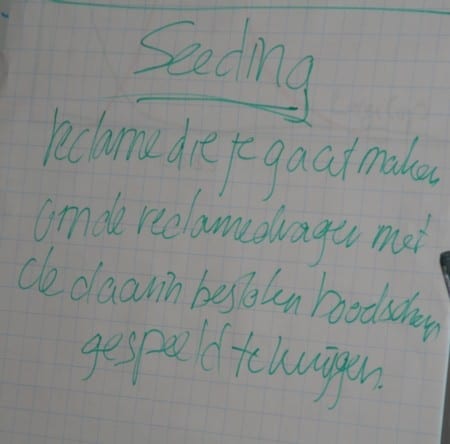 Seeding
reclame die je gaat maken
om de reclamedrager met
de daarin besloten boodschap
gespeeld te krijgen.